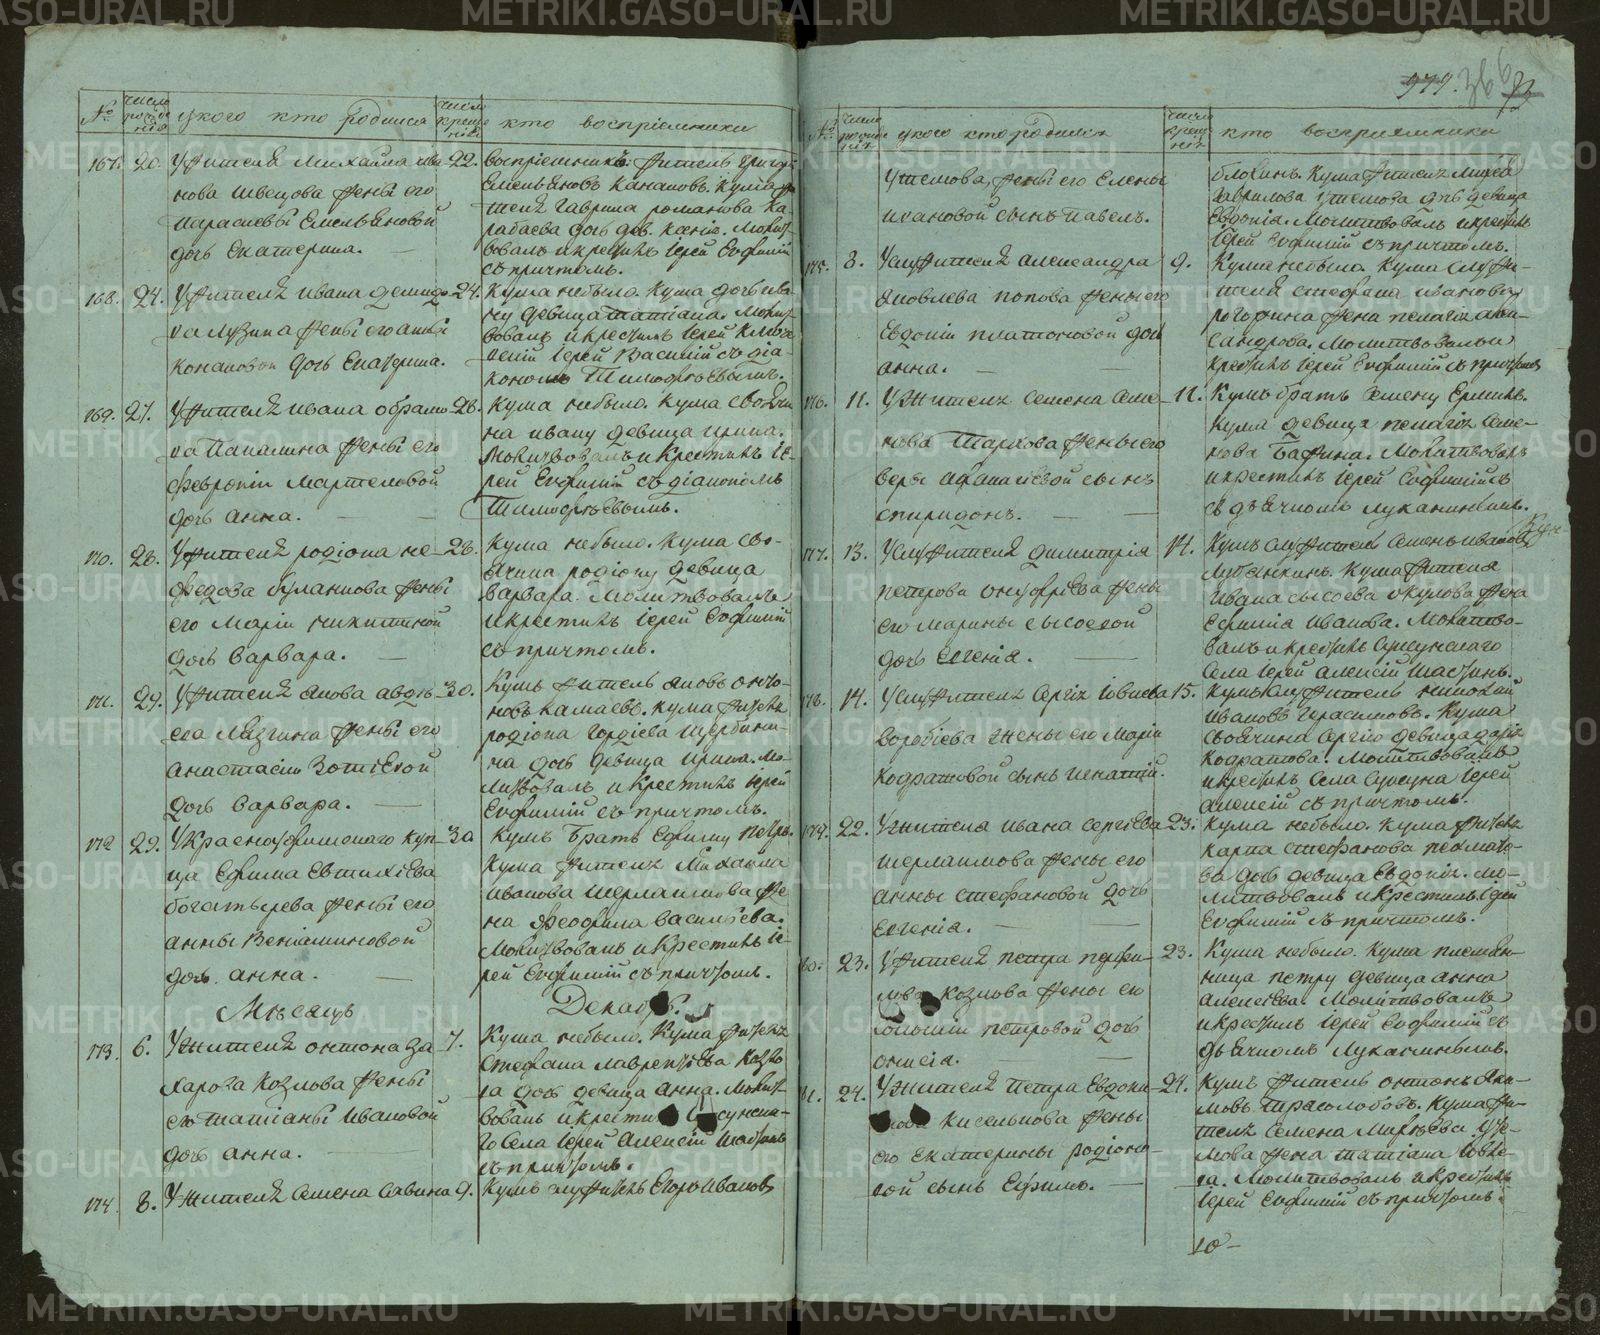 №
число рожде нія
у кого кто родился
число креще нія
кто воспріемники
167.
20.
У жителя Михайла Ива
нова Швецова жены его
Параскевы Емельяновой
дочь Екатерина.
22.
Воспріемникъ житель Григорій
Емельяновъ Канаковъ. Кума жи
теля Гаврила Романова Ка-
рабаева дочь дев. Ксенія. Молит
вовалъ и крестилъ Іерей Евфимій
съ причтомъ.
168.
24.
У жителя Ивана Демидо
ва Лузина жены его Анны
Конановой дочь Екатерина.
24.
Кума небыло. Кума дочь Ива-
ну девица Татіана. Молит
вовалъ и крестилъ Іерей
Іерей Василій съ діа-
кономъ Тимофеевымъ.
169.
27.
У жителя Ивана Обрамо
ва Папалина жены его
Февроніи Мартеловой
дочь Анна.
28.
Кума небыло. Кума своячи
на Ивану девица Ирина.
Молитвовалъ и крестилъ Іе-
рей Евфимій съ діакономъ
Тимофеевымъ.
170.
28.
У жителя Родіона Не-
федова Булашова жены
его Маріи Никитиной
дочь Варвара.
28.
Кума небыло. Кума сво-
ячина Родіону девица
Варвара. Молитвовалъ
и крестилъ Іерей Евфимій
съ причтомъ.
171.
29.
У жителя Якова Авдѣ-
ева Лязгина жены его
Анастасіи Зотіевой
дочь Варвара.
30.
Кумъ житель Яковъ Анто-
новъ Камаевъ. Кума жителя
Родіона Гордіева Щербини-
на дочь девица Ирина. Мо-
литвовалъ и крестилъ Іерей
Евфимій съ причтомъ.
172
29.
У Красноуфимскаго куп-
ца Ефима Евтихіева
Богатырева жены его
Анны Веніаминовой
дочь Анна.
30
Кумъ братъ Ефиму Петръ.
Кума жителя Михаила
Иванова Шерлаимова же
на Феофила Васильева.
Молитвовалъ и крестилъ Іе-
рей Евфимій съ причтомъ.
Мѣсяцъ
Декабрь.
173.
6.
У жителя Антона За
харова Козлова жены
его Татіаны Ивановой
дочь Анна.
7.
Кума небыло. Кума жителя
Стефана Лаврентіева Козло
ва дочь девица Анна. Молит
вовалъ и крестилъ Сусунска-
го села Іерей Алексій
съ причтомъ.
174.
8.
У жителя Семена Савина
9.
Кумъ служитель Егоръ Ивановъ
979.
№
число рожде нія
у кого кто родился
число креще нія
кто воспріемники
Утемова, жены его Елены
Ивановой сынъ Павелъ.
Блохинъ. Кума жителя Михея
Гаврилова Утемова дочь девица
Евдокія. Молитвовалъ и крестилъ
Іерей Евфимій съ причтомъ.
175.
8.
У служителя Александра
Яковлева Попова жены его
Евдокіи Платоновой дочь
Анна.
9.
Кума небыло. Кума служи-
теля Стефана Иванова
Рогожина жена Пелагія Алек-
сандрова. Молитвовалъ и
крестилъ Іерей Евфимій съ причтомъ
176.
11.
У жителя Семена Семе-
нова Тархова жены его
Веры Афанасіевой сынъ
Спиридонъ.
11.
Кумъ братъ Семену Ермилъ.
Кума девица Пелагія Семе-
нова Бажина. Молитвовалъ
и крестилъ Іерей Евфимій
съ дьячкомъ Луканинымъ.
177.
13.
У служителя Димитрія
Петрова Онуфріева жены
его Марины Сысоевой
дочь Евгенія.
14.
Кумъ служитель Семенъ Ивановъ
Лубянкинъ. Кума жителя
Ивана Сысоева Окулова жена
Ефимія Иванова. Молитво-
валъ и крестилъ Сусунскаго
села Іерей Алексій
178.
14.
У служителя Сергія Іовлева
Воробіева жены его Маріи
Кодратовой сынъ Игнатій.
15.
Кумъ служитель Николай
Ивановъ Герасимовъ. Кума
своячина Сергію девица Дарія
Кодратова. Молитвовалъ
и крестилъ села Сусуна Іерей
Алексій съ причтомъ.
179.
22.
У жителя Ивана Сергіева
Шерлаимова жены его
Анны Стефановой дочь
Евгенія.
23.
Кума небыло. Кума жителя
Карпа Стефанова Похмато-
ва дочь девица Евдокія. Мо-
литвовалъ и крестилъ Іерей
Евфимій съ причтомъ.
80.
23.
У жителя Петра Перфи-
лова Козлова жены его
Петровой дочь
Анисія.
23.
Кума небыло. Кума племян-
ница Петру девица Анна
Алексіева. Молитвовалъ
и крестилъ Іерей Евфимій съ
дьячкомъ Луканинымъ.
24.
У жителя Петра Евдоки-
мова Кисельнова жены
его Екатерины Родіоно-
вой сынъ Ефимъ.
24.
Кумъ житель Антонъ Яки-
мовъ Трясолобовъ. Кума жи-
теля Семена Маркіева Уте-
мова жена Татіана Іовле-
ва. Молитвовалъ и крестилъ
Іерей Евфимій съ причтомъ.
10
METRIKI.GASO-URAL.RU